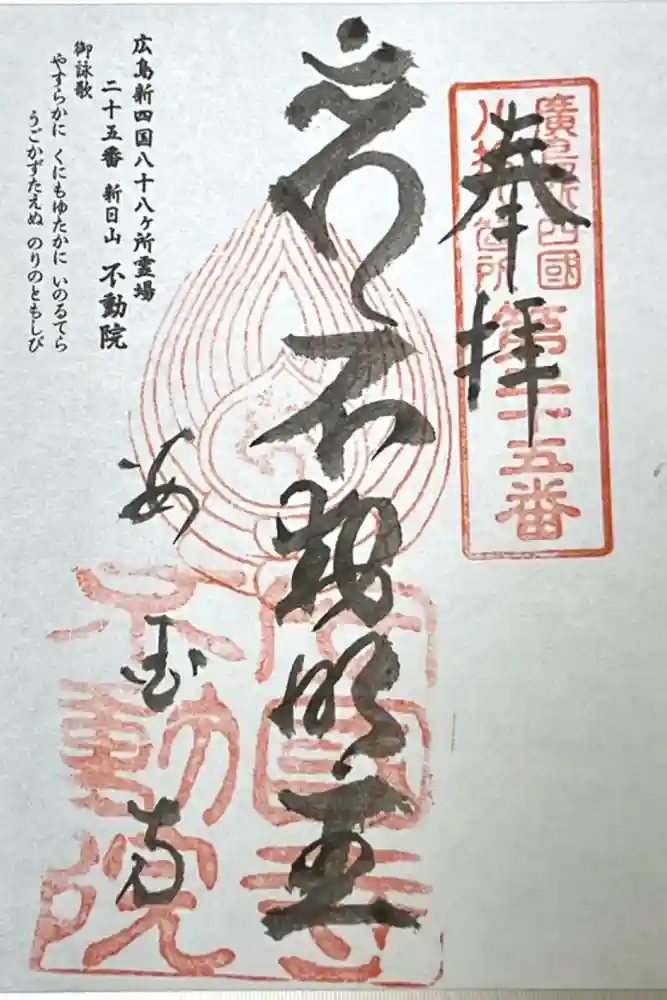 廣島新四國
八拾八箇所
第二十五番
奉拝
不動明王
安国寺
安國寺
不動院
広島新四国八十八ヶ所霊場
二十五番 新日山 不動院
御詠歌
やすらかに くにもゆたかに いのるてら
うごかずたえぬ のりのともしび